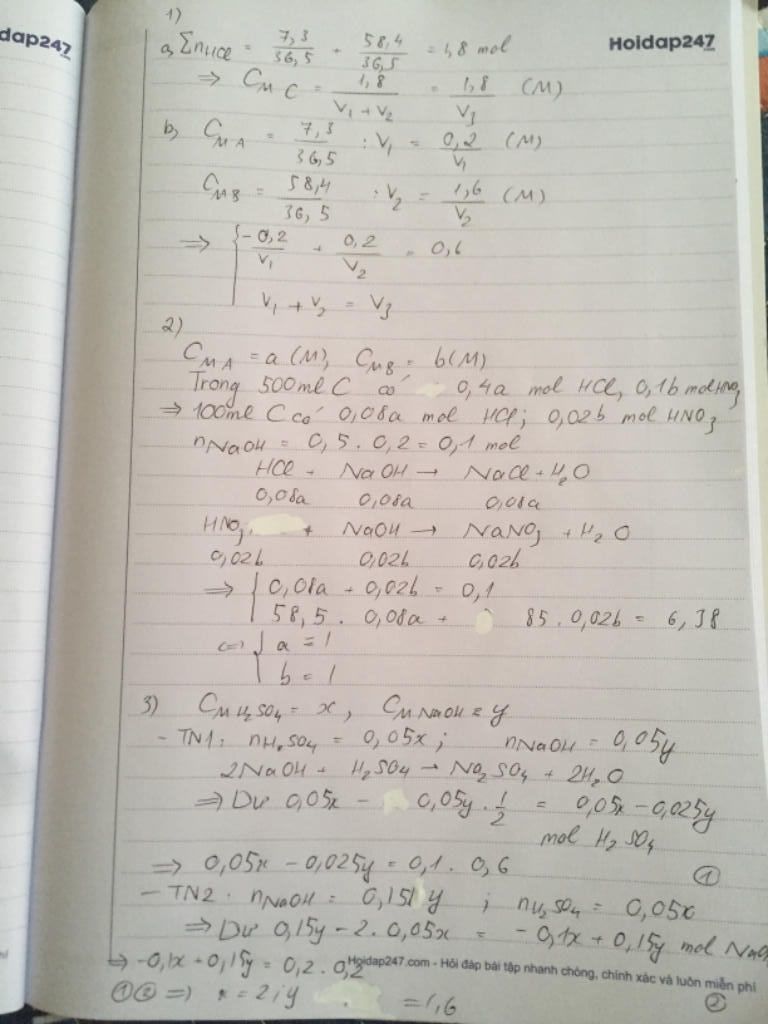 dap247
Hoidap247
1)
a, Σn HCl = 7,3/36,5 + 58,4/36,5 = 1,8 mol
⇒ C_M C = 1,8/(V₁ + V₂) = 1,8/V₃ (M)
b, C_M A = 7,3/36,5 : V₁ = 0,2/V₁ (M)
C_M B = 58,4/36,5 : V₂ = 1,6/V₂ (M)
⇒ { -0,2/V₁ + 0,2/V₂ = 0,6
V₁ + V₂ = V₃
2)
C_M A = a (M), C_M B = b (M)
Trong 500ml C có 0,4a mol HCl, 0,1b mol HNO₃
⇒ 100ml C có 0,08a mol HCl; 0,02b mol HNO₃
n NaOH = 0,5 . 0,2 = 0,1 mol
HCl + NaOH → NaCl + H₂O
0,08a 0,08a 0,08a
HNO₃ + NaOH → NaNO₃ + H₂O
0,02b 0,02b 0,02b
⇒ { 0,08a + 0,02b = 0,1
58,5 . 0,08a + 85 . 0,02b = 6,38
⇔ { a = 1
b = 1
3) C_M H₂SO₄ = x, C_M NaOH = y
- TN1: n H₂SO₄ = 0,05x; n NaOH = 0,05y
2NaOH + H₂SO₄ → Na₂SO₄ + 2H₂O
⇒ Dư 0,05x - 0,05y . 1/2 = 0,05x - 0,025y
mol H₂SO₄
⇒ 0,05x - 0,025y = 0,1 . 0,6 ①
- TN2. n NaOH = 0,15y ; n H₂SO₄ = 0,05x
⇒ Dư 0,15y - 2 . 0,05x = -0,1x + 0,15y mol NaOH
⇒ -0,1x + 0,15y = 0,2 . 0,2
Hoidap247.com - Hỏi đáp bài tập nhanh chóng, chính xác và luôn miễn phí
①② ⇒ x = 2; y = 1,6 ②